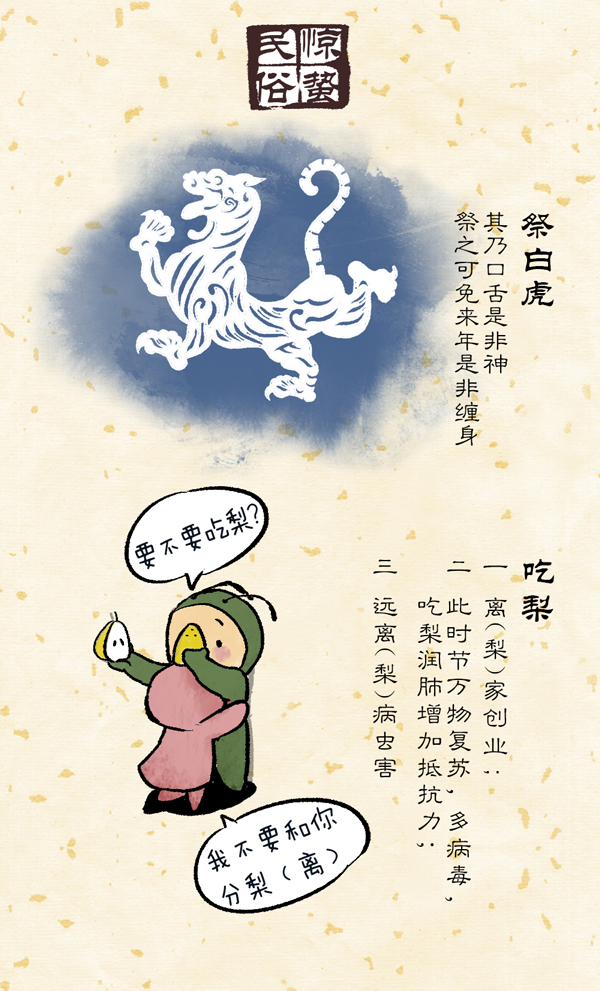 惊蛰
民俗
祭白虎
其乃口舌是非神
祭之可免来年是非缠身
要不要吃梨?
吃梨
一 离(梨)家创业;
二 此时节万物复苏,多病毒,
吃梨润肺增加抵抗力;
三 远离(梨)病虫害
我不要和你
分梨(离)